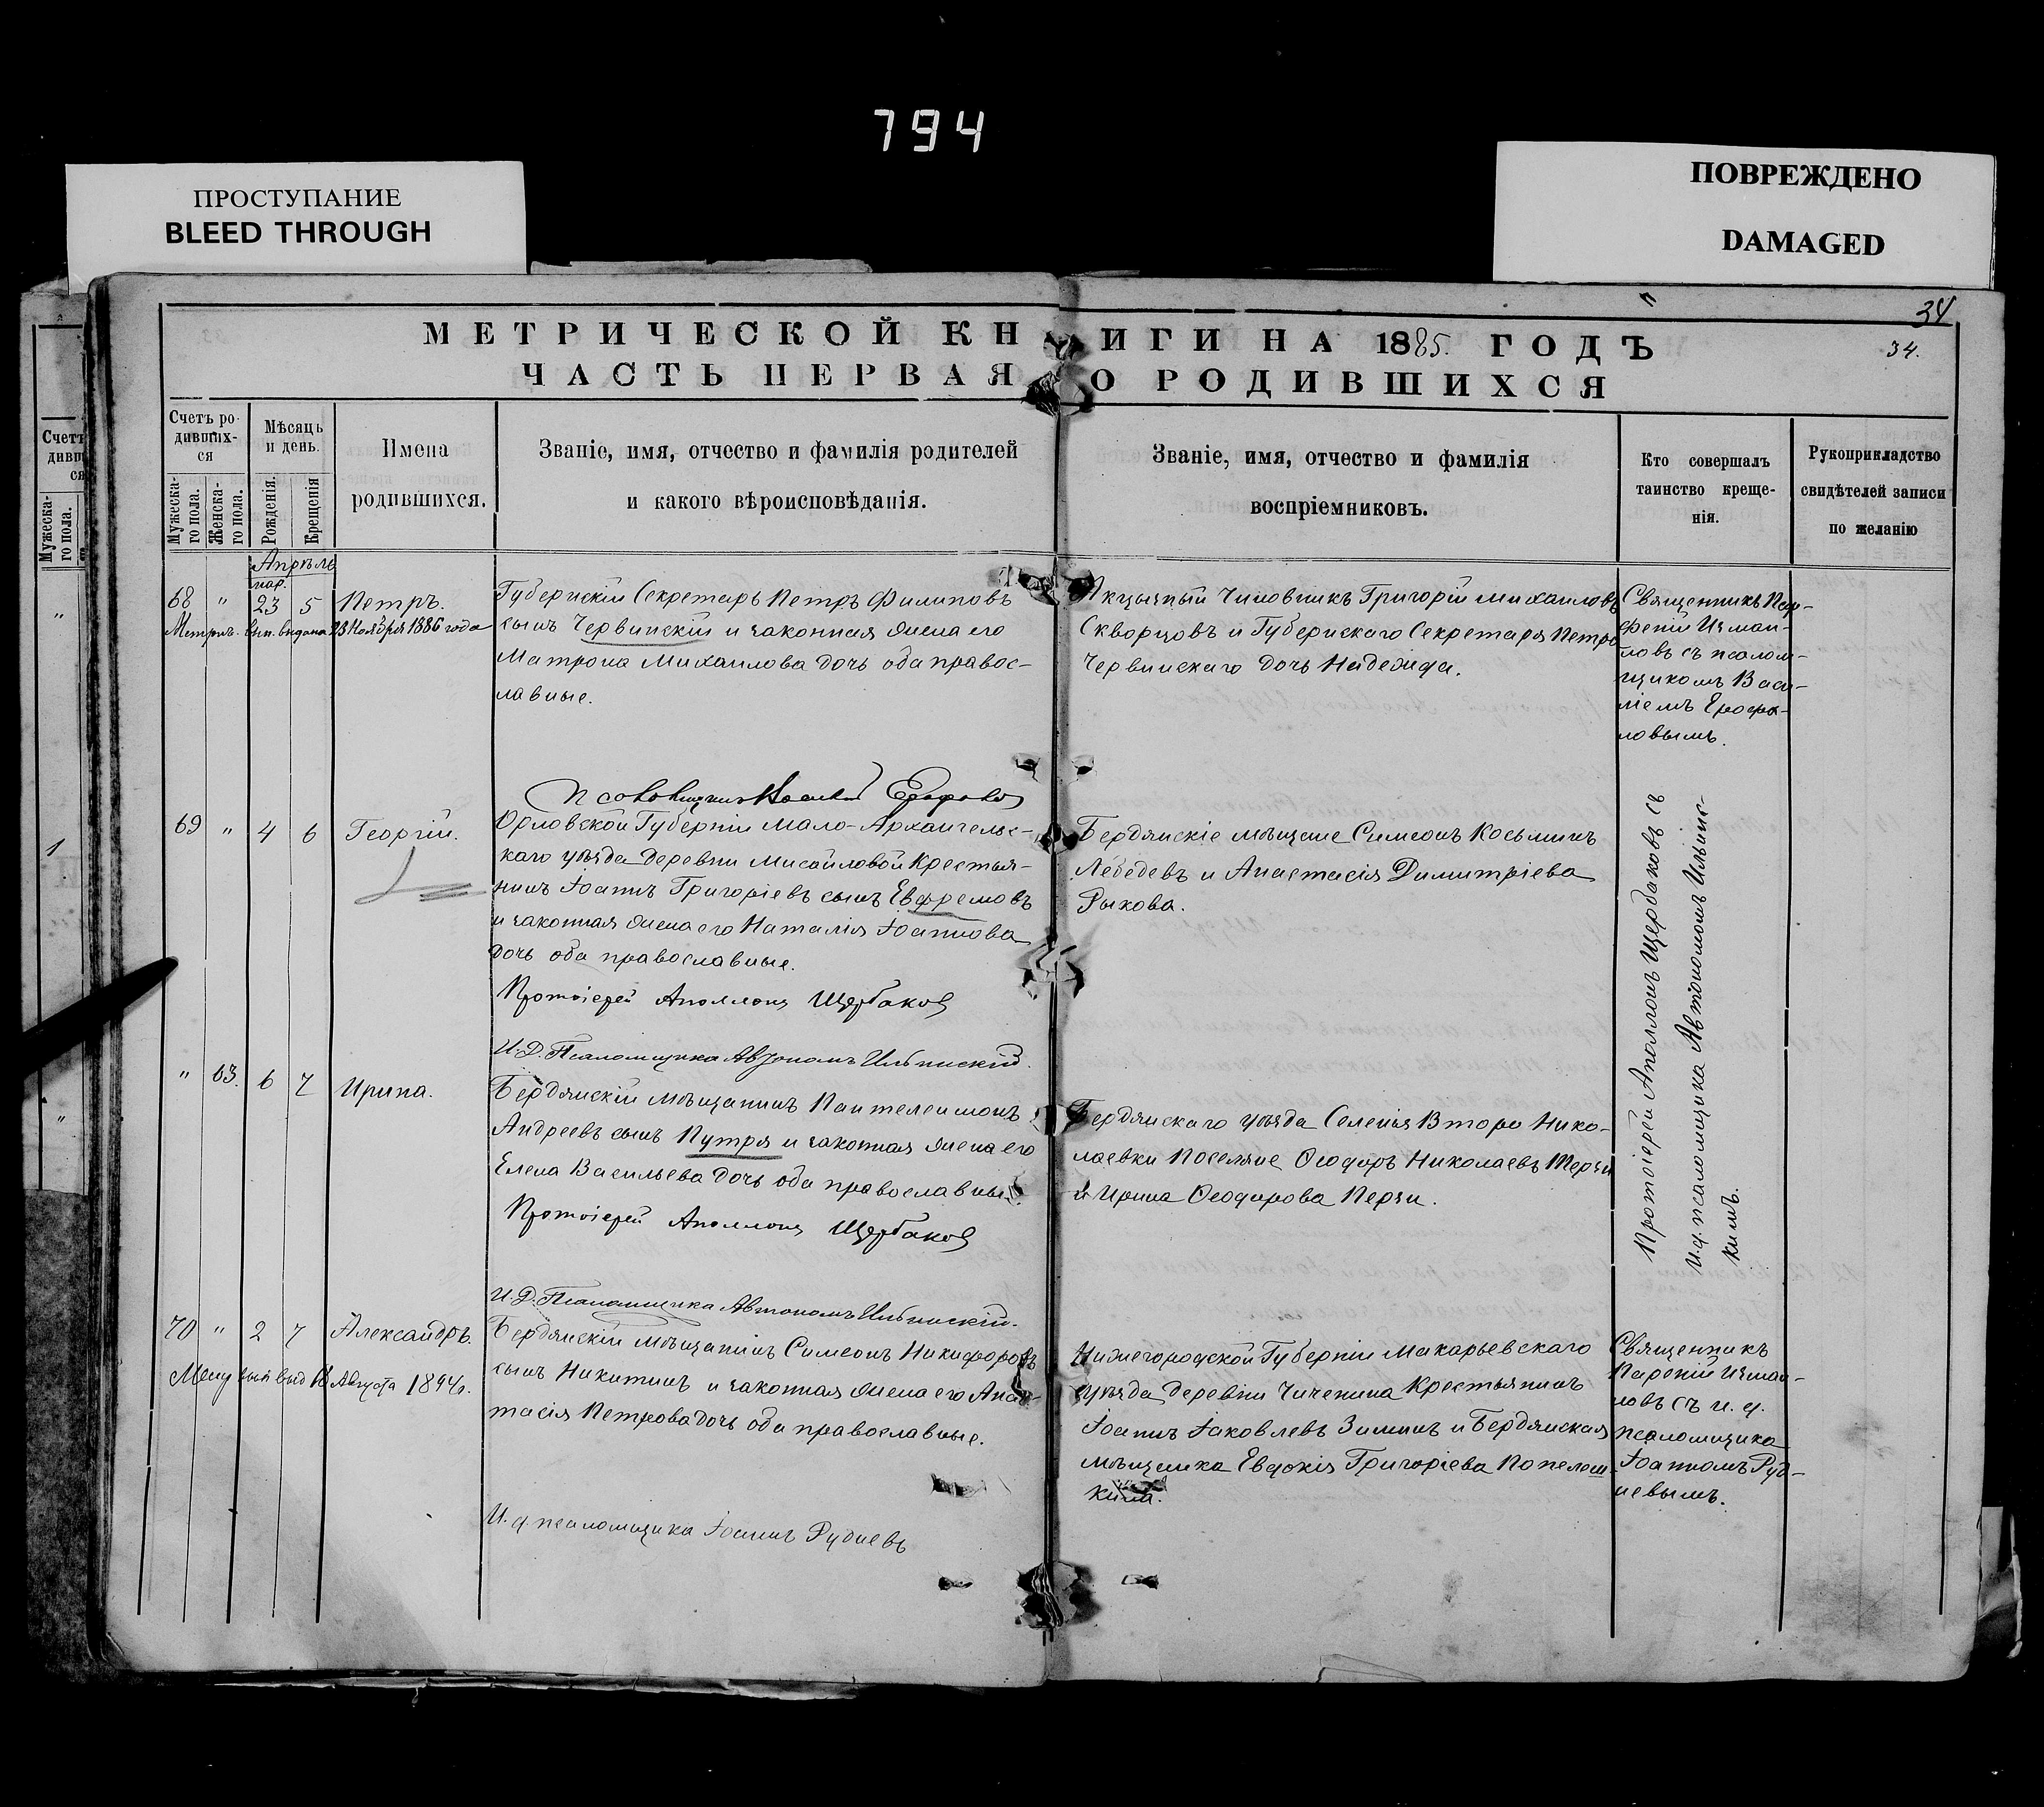 794
ПРОСТУПАНИЕ
BLEED THROUGH
ПОВРЕЖДЕНО
DAMAGED
34
МЕТРИЧЕСКОЙ КНИГИ НА 1885. ГОДЪ
34.
ЧАСТЬ ПЕРВАЯ О РОДИВШИХСЯ
Счетъ ро-
дивших-
ся
Мужеска-
го пола.
Женска-
го пола.
Мѣсяцъ
и день.
Рожденія.
Крещенія
Имена
родившихся.
Званіе, имя, отчество и фамилія родителей
и какого вѣроисповѣданія.
Званіе, имя, отчество и фамилія
воспріемниковъ.
Кто совершалъ
таинство креще-
нія.
Рукоприкладство
свидѣтелей записи
по желанію
Апрѣль
мар.
68 " 23 5 Петръ.
Метрич. вып. выдана 23 Ноября 1886 года
Губернскій Секретарь Петръ Филиповъ
сынъ Червинскій и законная жена его
Матрона Михаилова дочь оба правос-
лавные.
Акцызный Чиновникъ Григорій Михаиловъ
Скворцовъ и Губернскаго Секретаря Петра
Червинскаго дочь Надежда.
Священникъ Пар-
феній Измаи-
ловъ съ псалом-
щикомъ Васи-
ліемъ Ерофа-
ловымъ.
69 " 4 6 Георгій.
Орловской Губерніи Мало-Архангельс-
каго уѣзда деревни Мисайловой Крестья-
нинъ Іоаннъ Григоріевъ сынъ Евфремовъ
и законная жена его Наталія Іоаннова
дочь оба православные.
Протоіерей Аполлонъ Щербаковъ
И.Д. Псаломщика Автономъ Ильинскій.
Бердянскіе мѣщане Симеонъ Косьминъ
Лебедевъ и Анастасія Димитріева
Рыкова.
Протоіерей Аполлонъ Щербаковъ съ
и.д. псаломщика Автономомъ Ильинс-
кимъ.
" 63. 6 7 Ирина.
Бердянскій мѣщанинъ Пантелеимонъ
Андреевъ сынъ Путря и законная жена его
Елена Васильева дочь оба православные.
Протоіерей Аполлонъ Щербаковъ
И.Д. Псаломщика Автономъ Ильинскій.
Бердянскаго уѣзда Селенія Второ Нико-
лаевки Поселяне Ѳеодоръ Николаевъ Терзи
и Ирина Ѳеодорова Перзи.
70 " 2 7 Александръ.
вып выд 18 Августа 1894 г.
Бердянскій мѣщанинъ Симеонъ Никифоровъ
сынъ Никитинъ и законная жена его Анас-
тасія Петрова дочь оба православные.
И.д. псаломщика Іоаннъ Рудневъ
Нижегородской Губерніи Макарьевскаго
уѣзда деревни Чиченина Крестьянинъ
Іоаннъ Іаковлевъ Зиминъ и Бердянская
мѣщанка Евдокія Григоріева Попелеш-
кина.
Священникъ
Парѳеній Измаи-
ловъ съ и.д.
псаломщика
Іоанномъ Руд-
невымъ.
Счетъ
дивш
ся
Мужеска-
го пола.
"
1
"